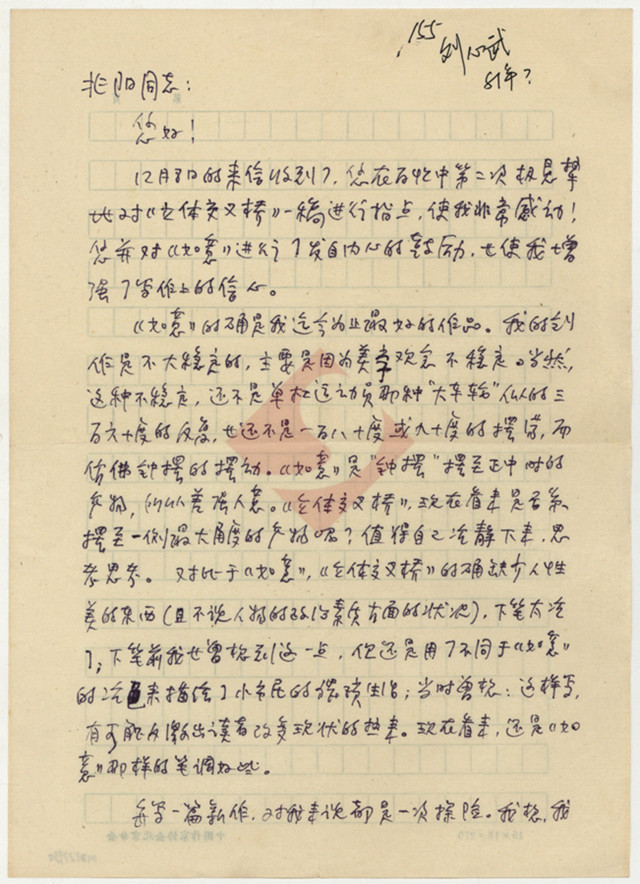 155
刘心武
81年？
兆阳同志：
您好！
12月8日的来信收到了，您在百忙中第二次极恳挚
地对《立体交叉桥》一稿进行指点，使我非常感动！
您并对《如意》进行了发自内心的鼓励，也使我增
强了写作上的信心。
《如意》的确是我迄今为止最好的作品。我的创
作是不大稳定的，主要是因为美学观念不稳定。当然，
这种不稳定，还不是单杠运动员那种“大车轮”似的三
百六十度的反复，也还不是一百八十度或九十度的摆荡，而
仿佛钟摆的摆动。《如意》是“钟摆”摆至正中时的
产物，所以差强人意。《立体交叉桥》，现在看来是否系
摆至一侧最大角度的产物呢？值得自己冷静下来，思
考思考。对比于《如意》，《立体交叉桥》的确缺少人性
美的东西（且不说人物的政治素质方面的状况），下笔太冷
了；下笔前我也曾想到这一点，但还是用了不同于《如意》
的冷来描绘了小市民的猥琐生活；当时曾想：这样写，
有可能反激出读者改变现状的热来。现在看来，还是《如
意》那样的笔调好些。
每写一篇新作，对我来说都是一次探险。我想，我
中国作家协会北京分会
15×18=270